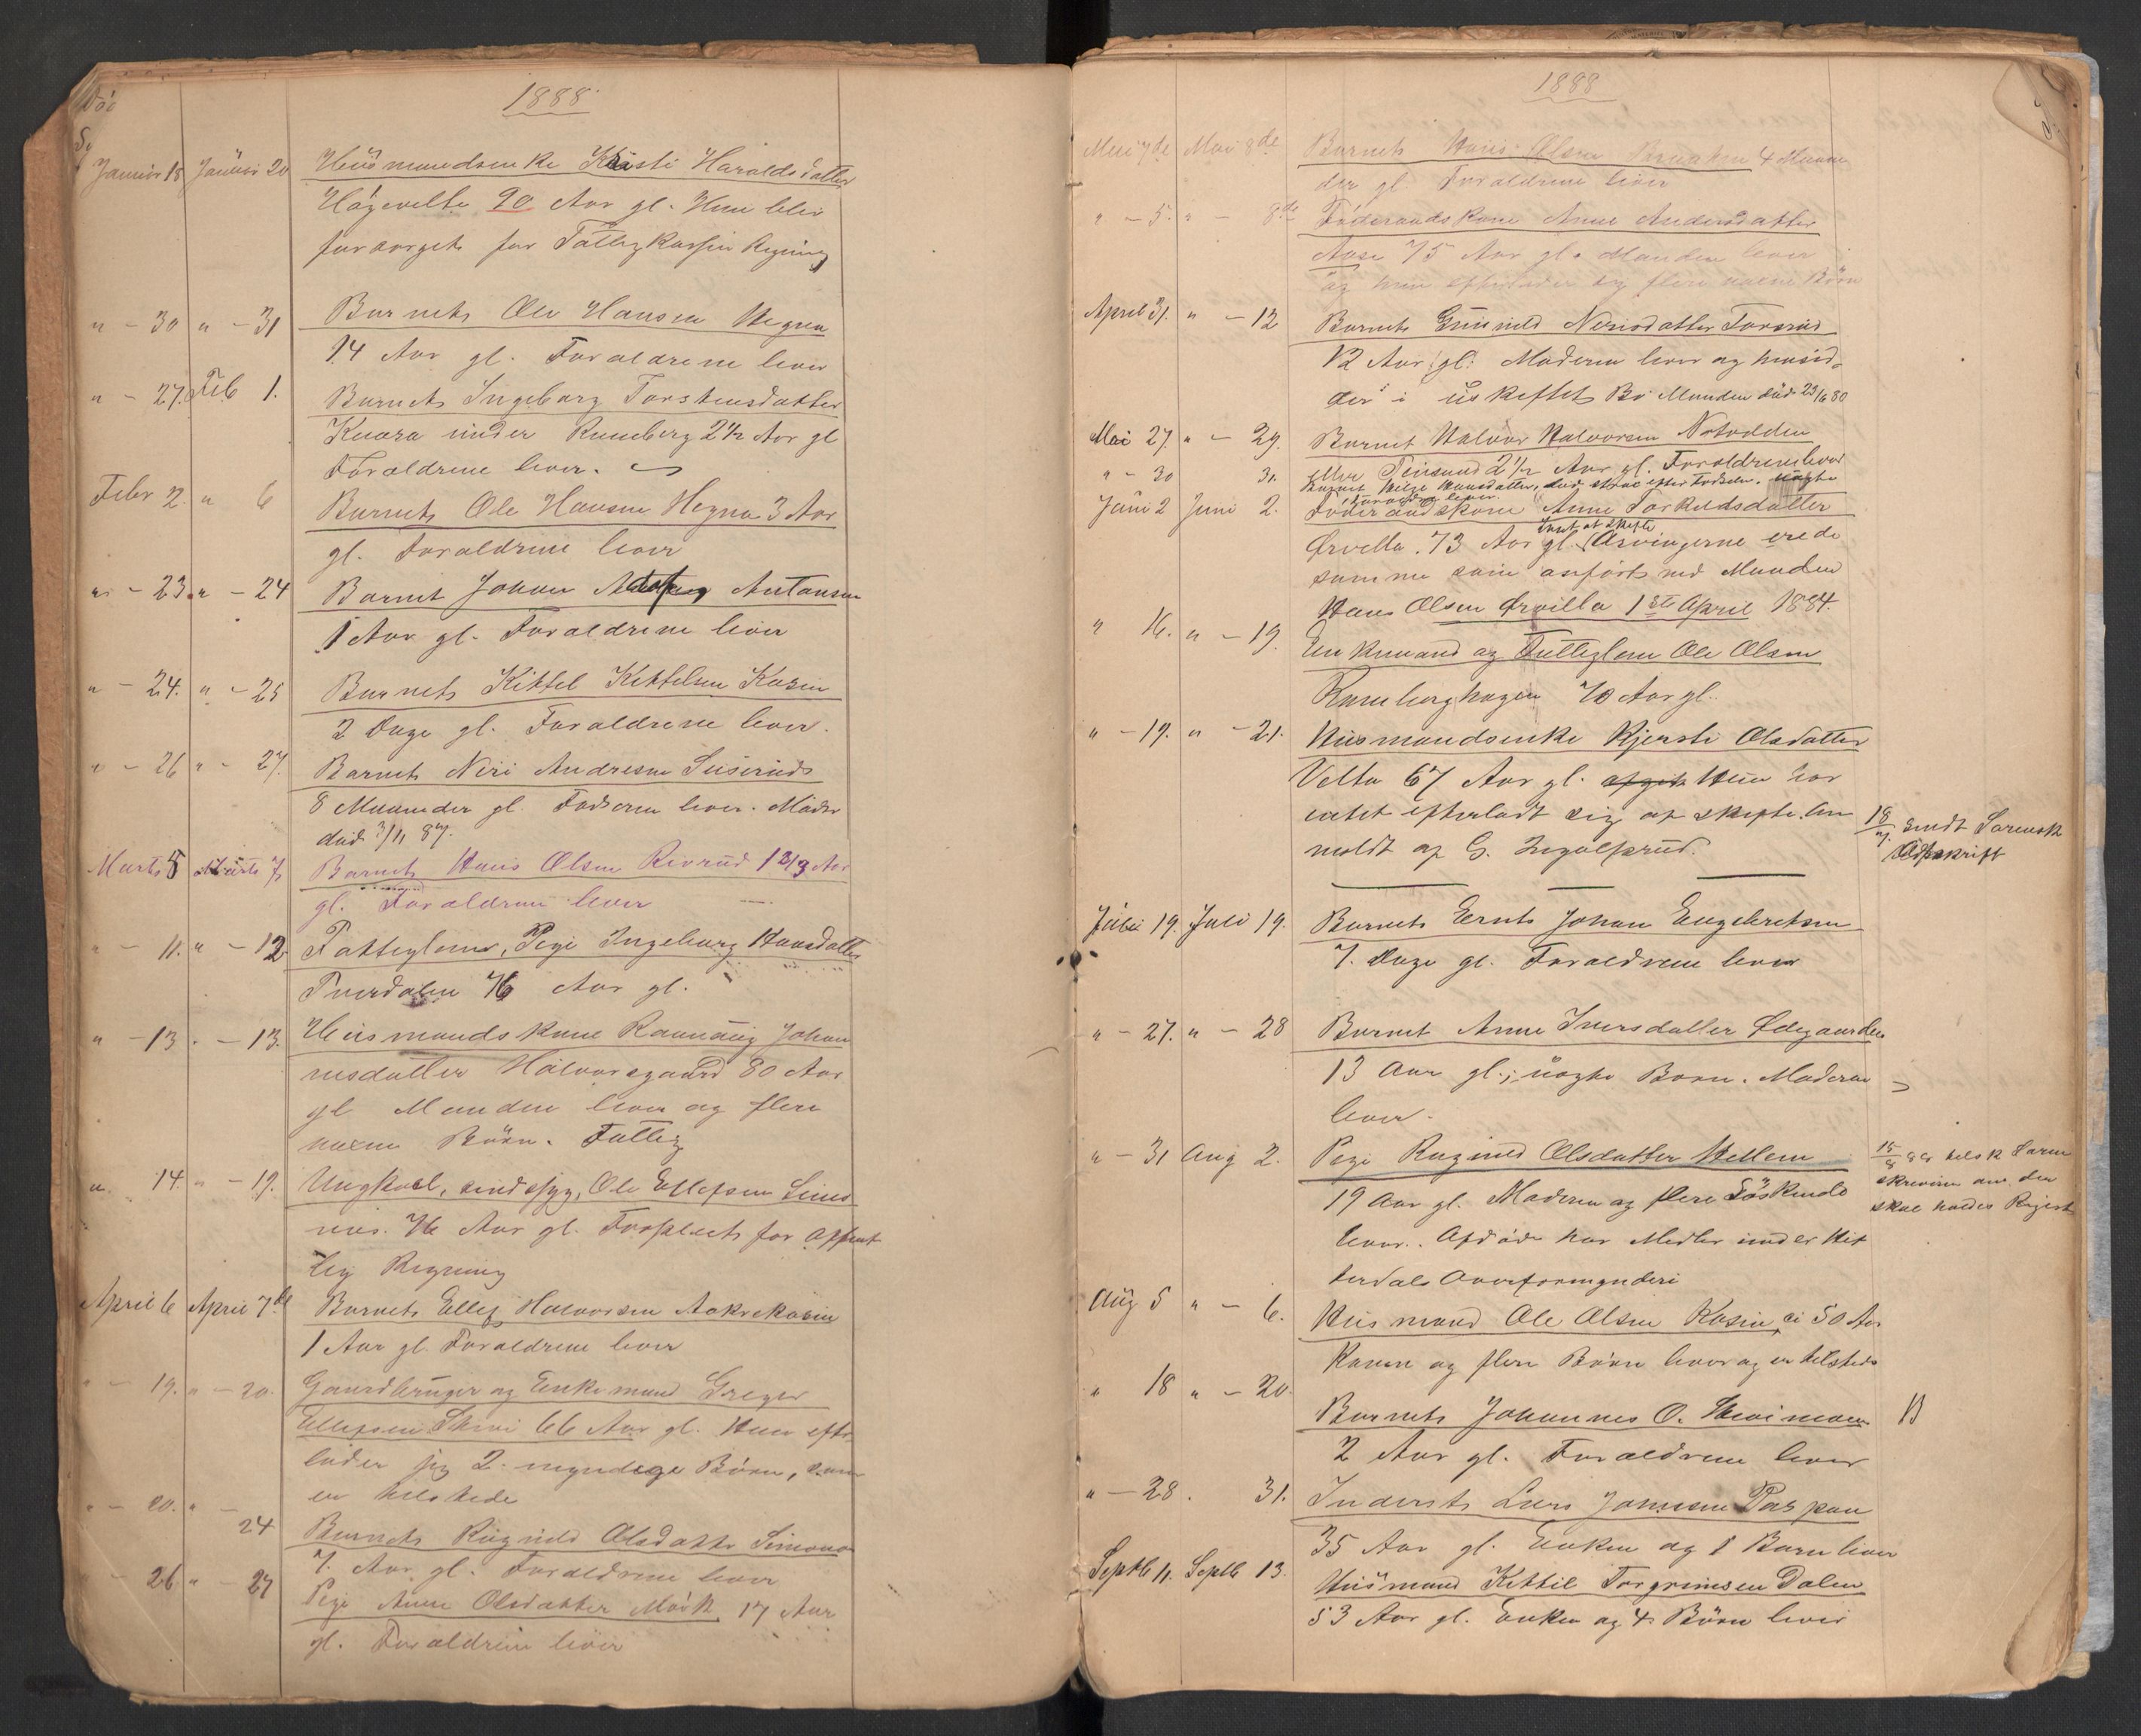 1888
Januar 18 Januar 20 Husmandsenke Kristi Haraldsdatter
Høgevelte 90 Aar gl. Hun blev
forsørget for Fattigkassen Regning
" - 30 " - 31 Barnet Ole Hansen Hegna
14 Aar gl. Forældrene lever
" - 27. Feb 1. Barnet Ingeborg Torstensdatter
under Rumberg 2 1/2 Aar gl
Forældrene lever.
Febr 2. " 6 Barnet Ole Hansen Hegna 3 Aar
gl. Forældrene lever
" - 23. " - 24 Barnet Johan Antonsen
1 Aar gl. Forældrene lever
" - 24. " - 25 Barnet Kittel Kittelsen Kasin
2 Dage gl. Forældrene lever.
" - 26 " - 27. Barnet Neri Andresen
8 Maaneder gl. Faderen lever. Moder
død 3/11 87.
Marts 5 Marts 7 Barnet Hans Olsen Revrud 1 2/3 Aar
gl. Forældrene lever
" - 11. " - 12 Fattiglem, Pige Ingeborg Hansdatter
Tverdalen 76 Aar gl.
" - 13 . - 13. Husmandskone Rannaug Johan
nesdatter Halvorsgaard 80 Aar
gl Manden lever og flere
voxne Børn. Fattig
" 14. " - 19. Ungkarl, sindssyg, Ole Ellefsen Simo
nes. 76 Aar gl. Forpleiet for Offent
lig Regning
April 6 April 7de Barnet Ellef Halvorsen Aakrekasin
1 Aar gl. Forældrene lever
" - 19. " - 20. Gaardbruger og Enkemand Greger
Ellefsen Skoie 66 Aar gl. Han efter
lader sig 2 myndige Børn, som
er tilstede
" - 20. " - 24 Barnet Ragnild Olsdatter Simones
7. Aar gl. Forældrene lever
" 26 " - 27 Pige Anne Olsdatter Mørk 17 Aar
gl. Forældrene lever
1888
Mai 7de Mai 8de Barnet Hans Olsen 4 Maane
der gl. Forældrene lever
" - 5. " - 8de Føderaadskone Anne Andersdatter
Aase 75 Aar gl. Manden lever
og hun efterlader sig flere voxne Børn
April 31. " - 12 Barnet Gunild Nerisdatter Forsrud
12 Aar gl. Moderen lever og hensid-
der i uskiftet Bo Manden død 23/6 80
Mai 27. " - 29. Barnet Halvor Halvorsen Notodden
eller Tinsund 2 1/2 Aar gl. Forældrene lever
" - 30 31. Barnet Helge Hansdatter, død strax efter Fødselen. uægte
Forældre lever.
Juni 2 Juni 2. Føderaadskone Anne Torkildsdatter
Ørvella. 73 Aar gl. (Intet at skifte Arvingerne ere de
samme som anført ved Manden
Hans Olsen Ørvilla 1ste April 1884.
" 16. " - 19. Enkemand og Fattiglem Ole Olsen
Rumberghagen 70 Aar gl.
" - 19. " - 21. Husmandsenke Kjersti Olsdatter
Velta 67 Aar gl. Hun har
intet efterladt sig at skifte. An
meldt af G. Ingolfsrud. 18/7. sendt Sorensk
Adskrift
Juli 19. Juli 19. Barnet Ernt Johan Engebretsen
7. Dage gl. Forældrene lever
" - 27. " - 28 Barnet Anne Iversdatter Ødegaarden
13 Aar gl.; uægte Barn. Moderen
lever.
" - 31 Aug 2. Pige Ragnild Olsdatter Hellem
19 Aar gl. Moderen og flere Søskende
lever. Afdøde har Midler under Hit
terdals Overformynderi
15/8 88 tilsk Soren
skriveren om der
skal holdes Registr
Aug 5 " - 6. Husmand Ole Olsen Kasin, ci 50 Aar
Konen og flere Børn lever og er tilstede
" 18 " - 20. Barnet Johannes O. Skoimoen
2 Aar gl. Forældrene lever
" - 28 . 31. Inderst Lars Jonsen
35 Aar gl. Enken og 1 Barn lever
Septb 11. Septb 13. Husmand Kittil Torgrimsen Dalen
53 Aar gl. Enken og 4 Børn lever